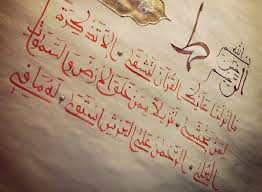 بسم الله
الرحمن
الرحيم
طه
ما انزلنا عليك القرآن لتشقى الا تذكرة
لمن يخشى تنزيلا ممن خلق الارض والسموات
العلى الرحمن على العرش استوى له ما في